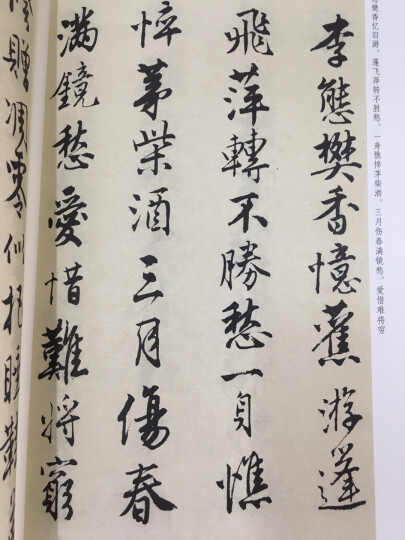 樊香忆旧游。蓬飞萍转不胜愁。一身憔悴茅柴酒。三月伤春满镜愁。爱惜难将穷
李態樊香憶舊游蓬
飛萍轉不勝愁一身憔
悴茅柴酒三月傷春
滿鏡愁愛惜難將窮
贈凋零似